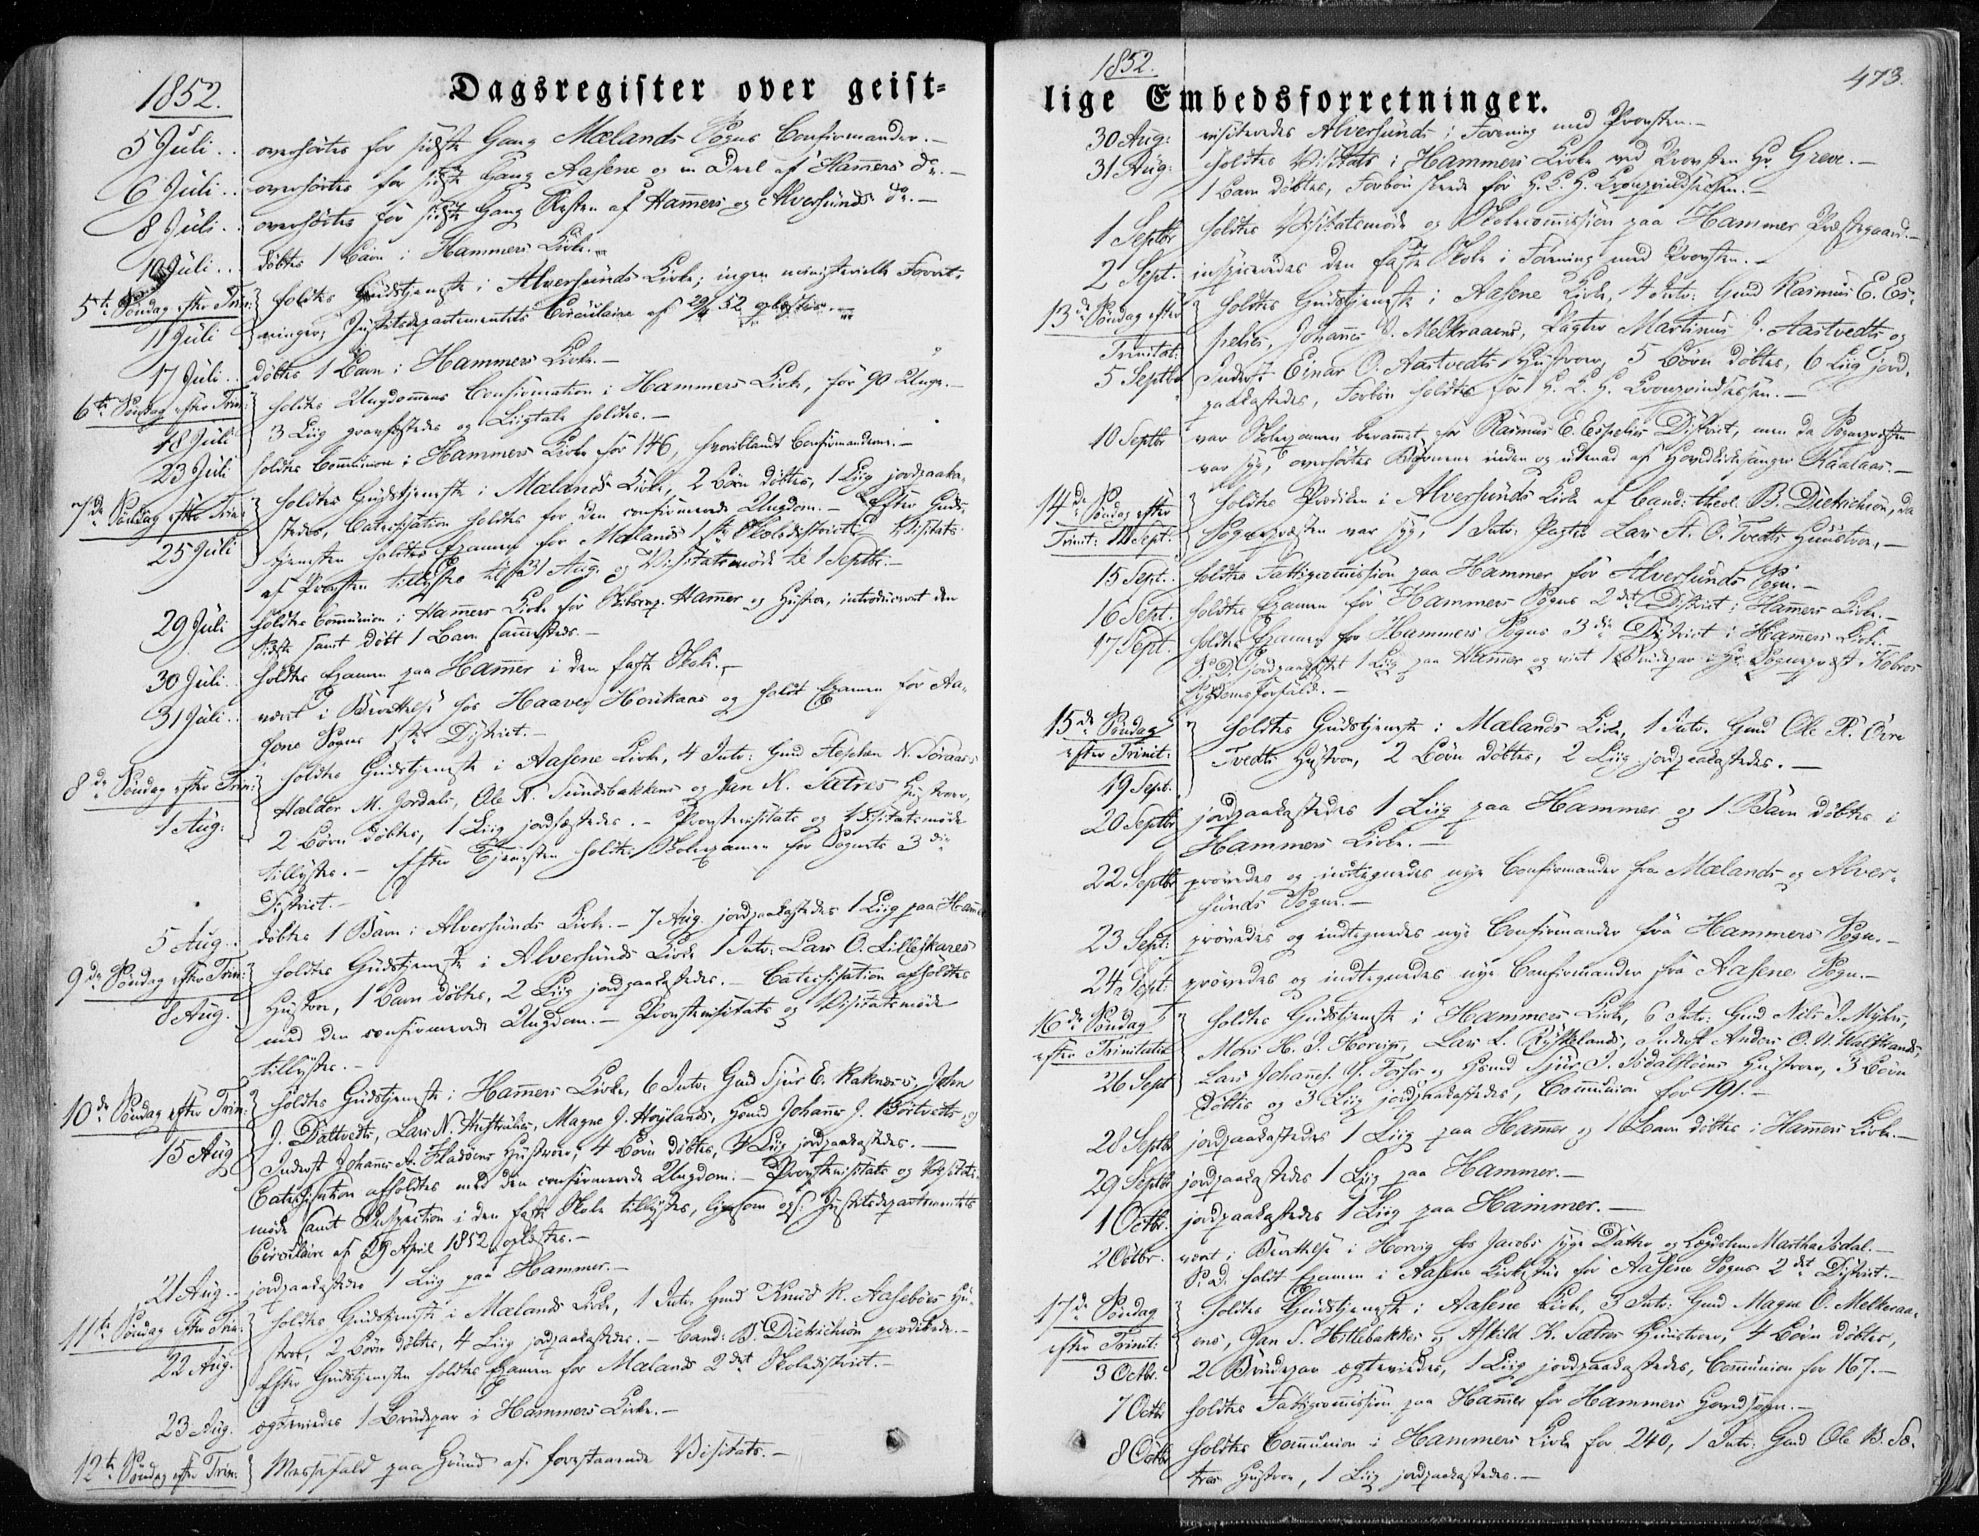 1852.
Dagsregister over geist-
5 Juli.. overhørtes for sidste Gang Mælands Sogns Confirmander.-
6 Juli.. overhørtes for sidste Gang Aasene og en Deel af Hamers do.-
8 Juli.. overhørtes for sidste Gang Resten af Hamers og Alversunds do.-
10 Juli... døbtes 1 Barn i Hammers Kirke.
5te Søndag efter Trin: holdtes Gudstjeneste i Alversunds Kirke; ingen ministerielle Forret-
11 Juli ninger; Justitsdepartementets Circulaire af 29/4 52 oplæstes.
17 Juli.. døbtes 1 Barn i Hammers Kirke.-
6te Søndag efter Trin: holdtes Ungdommens Confirmation i Hammers Kirke, for 90 Unge.-
18 Juli 3 Liig gravfæstedes og Liigtale holdtes.-
23 Juli holdtes Communion i Hammers Kirke for 146, hvoriblandt Confirmanderne.-
7de Søndag efter Trin: holdtes Gudstjeneste i Mælands Kirke, 2 Børn døbtes, 1 Liig jordpaaka-
stedes, Catechisation holdtes for den confirmerede Ungdom.- Efter Guds-
25 Juli tjenesten holdtes Examen for Mælands 1ste Skoledistrict.- Visitats
af Provsten tillystes til 31 Aug. og Visitatsmøde til 1 Septbr.-
29 Juli holdtes Communion i Hamers Kirke for Hamer og Hustru, introduceret den
sidste samt døbt 1 Barn sammesteds.-
30 Juli.. holdtes Examen paa Hamer i den faste Skole.-
31 Juli.. været i Berettelse hos Haaver Honkaas og holdt Examen for Aa-
sene Sogns 1ste District.-
8de Søndag efter Trin: holdtes Gudstjeneste i Aasene Kirke, 4 Intr: Gmd Stephen N. Soraas,
Haldor M. Jordals, Ole N. Sundsbakkens og Jan N. Sætres Hustruer,
1 Aug: 2 Børn døbtes, 1 Liig jordfæstedes.- Provstevisitats og Visitatsmøde
tillystes.- Efter Tjenesten holdtes Skoleexamen for Sognets 3die
District.-
5 Aug.. døbtes 1 Barn i Alversunds Kirke.- 7 Aug. jordpaakastedes 1 Liig paa Hamer
9de Søndag efter Trin: holdtes Gudstjeneste i Alversunds Kirke 1 Intr: Lars O. Lilleskares
8 Aug. Hustrue, 1 Barn døbtes, 2 Liig jordpaakastedes.- Catechisation afholdtes
med den confirmerede Ungdom.- Provstevisitats og Visitatsmøde
tillystes.-
10de Søndag efter Trin: holdtes Gudstjeneste i Hamers Kirke, 6 Intr. Gmd Sjur E. Raknæs, John
J. Dattvedts, Lars N. , Magne J. Høylands, Johannes J. Börtvedts, og
15 Aug Inderst Johannes A. Hustruer, 4 Børn døbtes, 4 Liig jordpaakastedes.-
Catechisation afholdtes med den confirmerede Ungdom.- Provstevisitats og Visitats-
møde samt Inspection i den faste Skole tillystes, ligesom og Justitsdepartementets
Circulaire af 29 April 1852 oplæstes.-
21 Aug.. jordpaakastedes 1 Liig paa Hammer.-
11te Søndag efter Trin: holdtes Gudstjeneste i Mælands Kirke, 1 Intr: Gmd Knud R. Aasebøes Hu-
strue, 2 Børn døbtes, 4 Liig jordpaakastedes.- Cand: B. Diettrichson prædikede.-
22 Aug. Efter Gudstjenesten holdtes Examen for Mælands 2det Skoledistrict.-
23 Aug. ægteviedes 1 Brudepar i Hammers Kirke.-
12te Søndag efter Trin: Messefald paa Grund af forestaaende Visitats.-
473.
1852.
lige Embedsforretninger.
30 Aug: visiteredes Alversunds i Forening med Provsten.-
31 Aug: holdtes Visitats i Hammers Kirke ved Provsten Hr. Greve.-
1 Barn døbtes, Forbøn skeede for H. K. H. Kronprindsessen.-
1 Septbr holdtes Visitatsmøde og Skolecommission paa Hammer Præstegaard.-
2 Sept. inspiceredes den faste Skole i Forening med Provsten.-
13de Søndag efter holdtes Gudstjeneste i Aasene Kirke, 4 Intr: Gmd Rasmus E. Es-
Trinitat: pelies, Johannes J. Melkraaens, Pagter Martinus J. Aastvedts og
5 Septbr Inderst Einar O. Aastvedts Hustruer, 5 Børn døbtes, 6 Liig jord-
paakastedes, Forbøn holdtes for H. K. H. Kronprindsessen.-
10 Septbr var Skoleexamen berammet for Rasmus E. Espelies District, men da Sognepræsten
var syg, overhørtes Børnene inden og udenad af Hovedkirkesanger Kaalaas.-
14de Søndag efter holdtes Prædiken i Alversunds Kirke af Cand: theol. B. Dietrichson, da
Trinit: 12 Sept: Sognepræsten var syg, 1 Intr: Pagter Lars A. O. Tvedts Hustrue.-
15 Sept. holdtes Fattigcommission paa Hammer for Alversunds Sogn.-
16 Sept. holdtes Examen for Hammers Sogns 2det District i Hamers Kirke.-
17 Sept. holdtes Examen for Hammers Sogns 3die District i Hamers Kirke.-
S. D. jordpaakastet 1 Liig paa Hammer og viet 1 Brudepar i Hr. Sognepræst Kobros
Sygdomsforfald.-
15de Søndag holdtes Gudstjeneste i Mælands Kirke, 1 Intr. Gmd Ole R. Øvre
efter Trinit: Tvedts Hustrue, 2 Børn døbtes, 2 Liig jordpaakastedes.-
19 Sept.
20 Septbr jordpaakastedes 1 Liig paa Hammer og 1 Barn døbtes i
Hammers Kirke.-
22 Septbr prøvedes og indtegnedes nye Confirmander fra Mælands og Alver-
sunds Sogne.-
23 Sept: prøvedes og indtegnedes nye Confirmander fra Hammers Sogn.-
24 Sept: prøvedes og indtegnedes nye Confirmander fra Aasene Sogn.-
16de Søndag holdtes Gudstjeneste i Hammers Kirke, 6 Intr: Gmd Nils J. Mykes,
efter Trinitatis Mons H. J. Horvigs, Lars L. Ryskelands, Inderst Anders O. N. ,
26 Sept Lars Johannes. J. Fosses og Huusmd Sjur J. Isdalsløens Hustruer, 3 Børn
døbtes og 3 Liig jordpaakastedes, Communion for 191.-
28 Septbr jordpaakastedes 1 Liig paa Hamer og 1 Barn døbtes i Hamers Kirke.-
29 Septbr jordpaakastedes 1 Liig paa Hammer.-
1 Octbr. jordpaakastedes 1 Liig paa Hammer.-
2 Octbr. været i Berettelse i Horvig hos Jacobs syge Datter og Martha Isdal.-
S. D. holdt Examen i Aasene Kirkestue for Aasene Sogns 2det District.-
17de Søndag holdtes Gudstjeneste i Aasene Kirke, 3 Intr: Gmd Magne O. Melkeraa-
efter Trinit: ens, Jan S. Hillebakkes og Askild K. Sætres Hustruer, 4 Børn døbtes,
3 Octbr. 2 Brudepar ægteviedes, 1 Liig jordpaakastedes, Communion for 167.-
7 Octbr holdtes Fattigcommission paa Hamer for Hammers Hovedsogn.-
8 Octbr holdtes Communion i Hammers Kirke for 240, 1 Intr: Gmd Ole B. Sæ-
tres Hustrue, 1 Liig jordpaakastedes.-